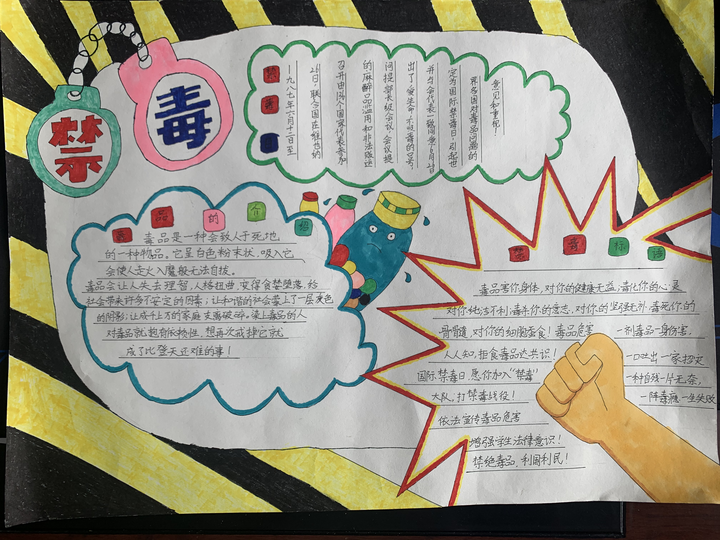 禁毒
禁毒
一九八七年六月十二日至
26日，联合国在维也纳
召开由138个国家代表参加
的麻醉品滥用和非法贩运
问题部长级会议。会议提
出了“爱生命，不吸毒”的口号
并与会代表一致同意6月26日
定为国际禁毒日，引起世
界各国对毒品问题的
意见和重视！
毒品的介绍
毒品是一种会致人于死地
的一种物品。它呈白色粉末状，吸入它
会使人走火入魔般无法自拔。
毒品会让人失去理智，人格扭曲，变得贪禁堕落，给
社会带来许多不安定的因素；让和谐的社会蒙上了一层灰色
的阴影；让成千上万的家庭支离破碎。染上毒品的人
对毒品就抱有依赖性，想再次戒掉它就
成了比登天还难的事！
禁毒标语
毒品害你身体，对你的健康无益；毒化你的心灵
对你纯洁不利；毒杀你的意志，对你的坚强无补；毒死你的
骨骨髓，对你的细胞蚕食！毒品危害
人人知，拒食毒品达共识！
国际禁毒日，愿你加入“禁毒”
大队，打禁毒战役！
依法宣传毒品危害
增强学生法律意识！
禁绝毒品，利国利民！
一剂毒品一身伤害，
一口吐出一家
一种自残一片无奈，
一阵毒瘾一生失败